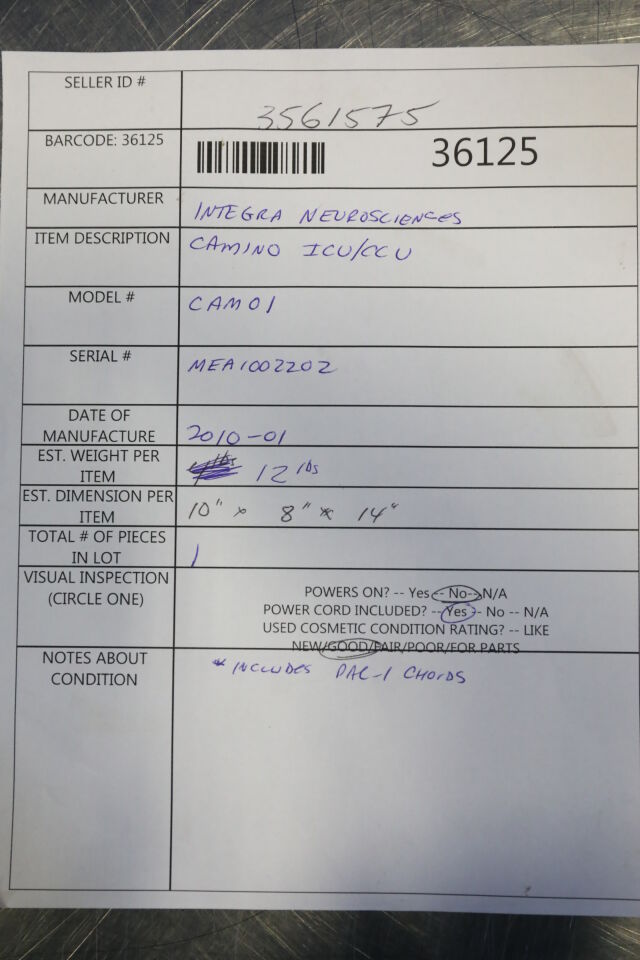 SELLER ID #
3561575
BARCODE: 36125
36125
MANUFACTURER
INTEGRA NEUROSCIENCES
ITEM DESCRIPTION
CAMINO ICU/CCU
MODEL #
CAM01
SERIAL #
MEA1002202
DATE OF
MANUFACTURE
2010-01
EST. WEIGHT PER
ITEM
12 lbs
EST. DIMENSION PER
ITEM
10" x 8" x 14"
TOTAL # OF PIECES
IN LOT
1
VISUAL INSPECTION
(CIRCLE ONE)
POWERS ON? -- Yes -- No -- N/A
POWER CORD INCLUDED? -- Yes -- No -- N/A
USED COSMETIC CONDITION RATING? -- LIKE
NEW/GOOD/FAIR/POOR/FOR PARTS
NOTES ABOUT
CONDITION
* INCLUDES PAC-1 CHORDS